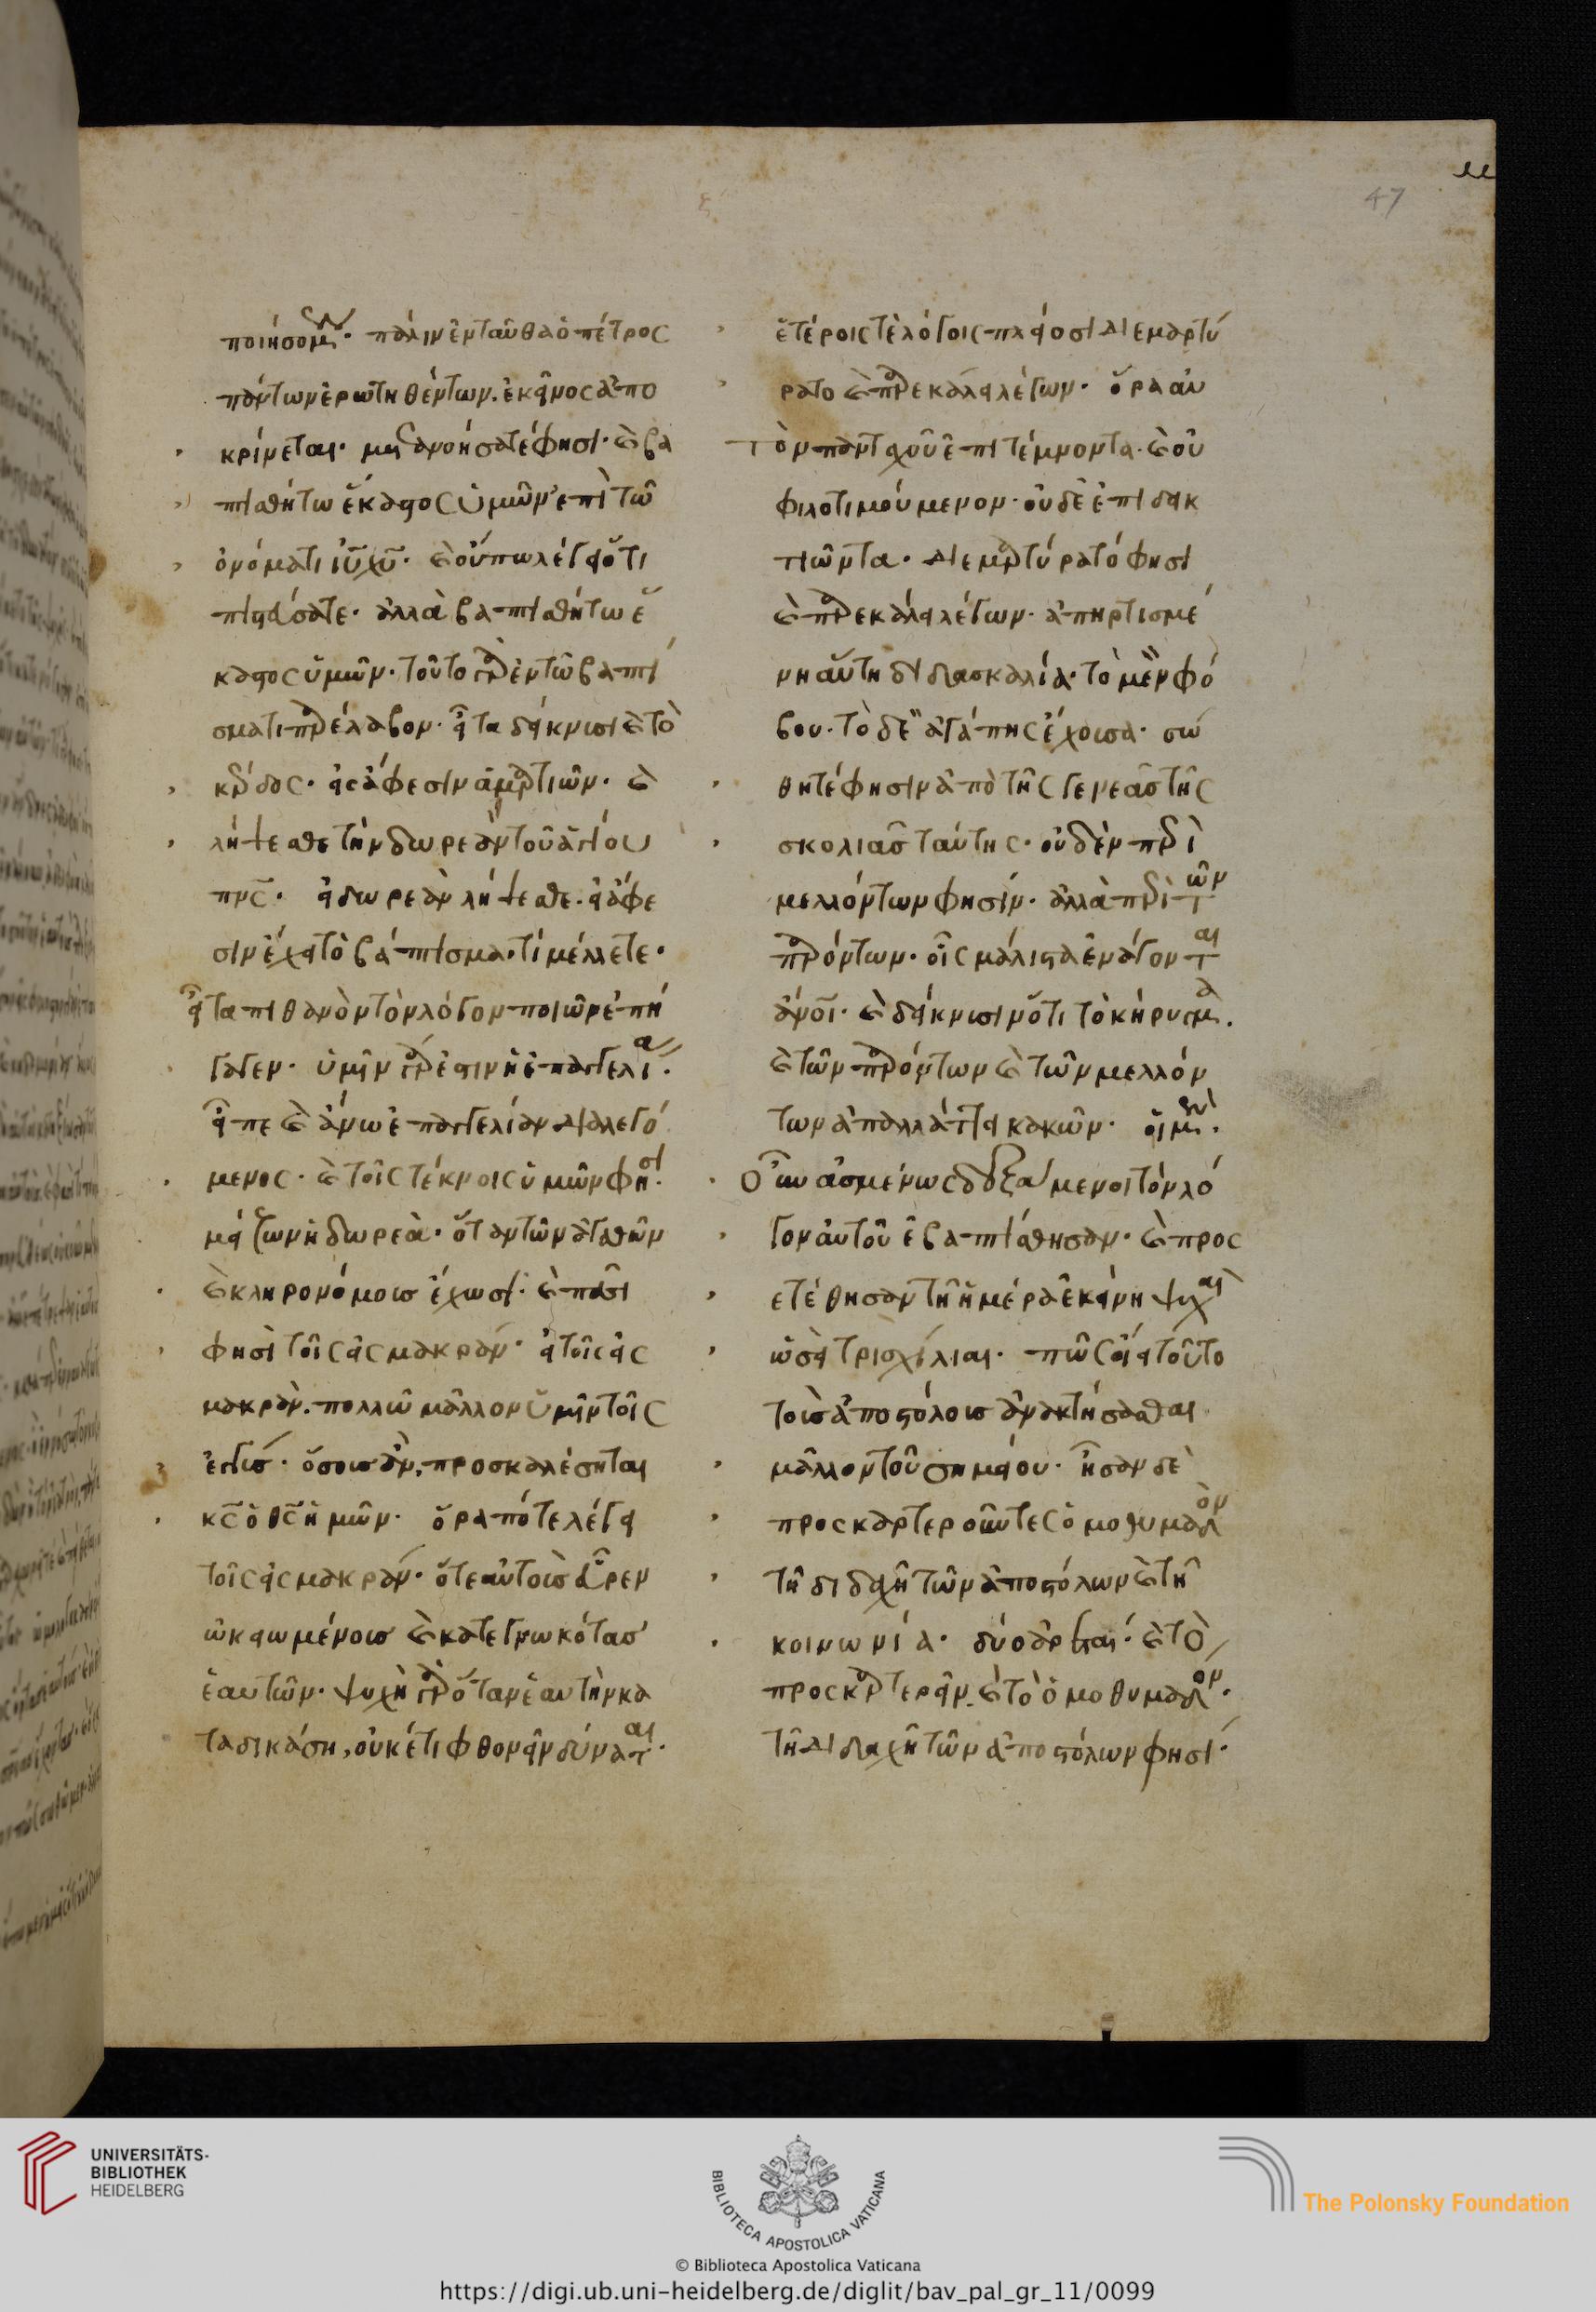 47
ποιήσομεν· πάλιν ἐνταῦθα ὁ πέτρος
πάντων ἐρωτηθέντων. ἐκεῖνος ἀπο
κρίνεται· μετανοήσατέ φησι· καὶ βα
πτισθήτω ἕκαστος ὑμῶν ἐπὶ τῶ
ὀνόματι ἰῦ χῦ· καὶ οὔπω λέγει ὅτι
πιστεύσατε· ἀλλὰ βαπτισθήτω ἕ
καστος ὑμῶν· τοῦτο γὰρ ἐν τῶ βαπτί
σματι παρέλαβον· εἶτα δείκνυσι καὶ τὸ
κέρδος· εἰς ἄφεσιν ἁμαρτιῶν· καὶ
λήψεσθε τὴν δωρεὰν τοῦ ἁγίου
πνς· εἰ δωρεὰν λήψεσθε· εἰ ἄφε
σιν ἔχει τὸ βάπτισμα· τί μέλλετε·
εἶτα πιθανὸν τὸν λόγον ποιῶν ἐπή
γαγεν· ὑμῖν γάρ ἐστιν ἡ ἐπαγγελία·
εἶπε καὶ ἄνω ἐπαγγελίαν διαλεγό
μενος· καὶ τοῖς τέκνοις ὑμῶν φησι·
μείζων ἡ δωρεὰ· ὅταν τῶν ἀγαθῶν
καὶ κληρονόμοις ἔχωσι· καὶ πᾶσι
φησὶ τοῖς εἰς μακράν· εἰ τοῖς εἰς
μακρὰν· πολλῶ μᾶλλον ὑμῖν τοῖς
ἐγγύς· ὅσους ἂν προσκαλέσηται
κς ὁ θς ἡμῶν· ὅρα πότε λέγει
τοῖς εἰς μακράν· ὅτε αὐτοὺς εὗρεν
ὠκειωμένους καὶ κατεγνωκότας
ἑαυτῶν· ψυχὴ γὰρ ὅταν ἑαυτὴν κα
ταδικάση, οὐκέτι φθονεῖν δύναται·
ἑτέροις τὲ λόγοις πλείοσι διεμαρτύ
ρατο καὶ παρεκάλει λέγων· ὅρα αὐ
τὸν πανταχοῦ ἐπιτέμνοντα· καὶ οὐ
φιλοτιμούμενον· οὐδὲ ἐπιδεικ
τιῶντα· διεμαρτύρατό φησι
καὶ παρεκάλει λέγων· ἀπηρτισμέ
νη αὕτη διδασκαλία· τὸ μὲν φό
βου· τὸ δὲ ἀγάπης ἔχουσα· σώ
θητέ φησιν ἀπὸ τῆς γενεᾶς τῆς
σκολιᾶς ταύτης· οὐδὲν περὶ
μελλόντων φησίν· ἀλλὰ περὶ τῶν
παρόντων· οἷς μάλιστα ἐνάγονται
ἄνοι· καὶ δείκνυσιν ὅτι τὸ κήρυγμα·
καὶ τῶν παρόντων καὶ τῶν μελλόν
των ἀπαλλάττει κακῶν· οἱ μὲν·
Οὖν ἀσμένως δεξάμενοι τὸν λό
γον αὐτοῦ ἐβαπτίσθησαν· καὶ προς
ετέθησαν τῆ ἡμέρα ἐκείνη ψυχαὶ
ὡσεὶ τρισχίλιαι· πῶς οἴει τοῦτο
τοὺς ἀποστόλους ἀνακτήσασθαι
μᾶλλον τοῦ σημείου· ἦσαν δὲ
προσκαρτεροῦντες ὁμοθυμαδὸν
τῆ διδαχῆ τῶν ἀποστόλων καὶ τῆ
κοινωνία· δύο ἀρεταί· καὶ τὸ
προσκαρτερεῖν· καὶ τὸ ὁμοθυμαδόν·
τῆ διδαχῆ τῶν ἀποστόλων φησί·
UNIVERSITÄTS-
BIBLIOTHEK
HEIDELBERG
BIBLIOTECA APOSTOLICA VATICANA
The Polonsky Foundation
© Biblioteca Apostolica Vaticana
https://digi.ub.uni-heidelberg.de/diglit/bav_pal_gr_11/0099